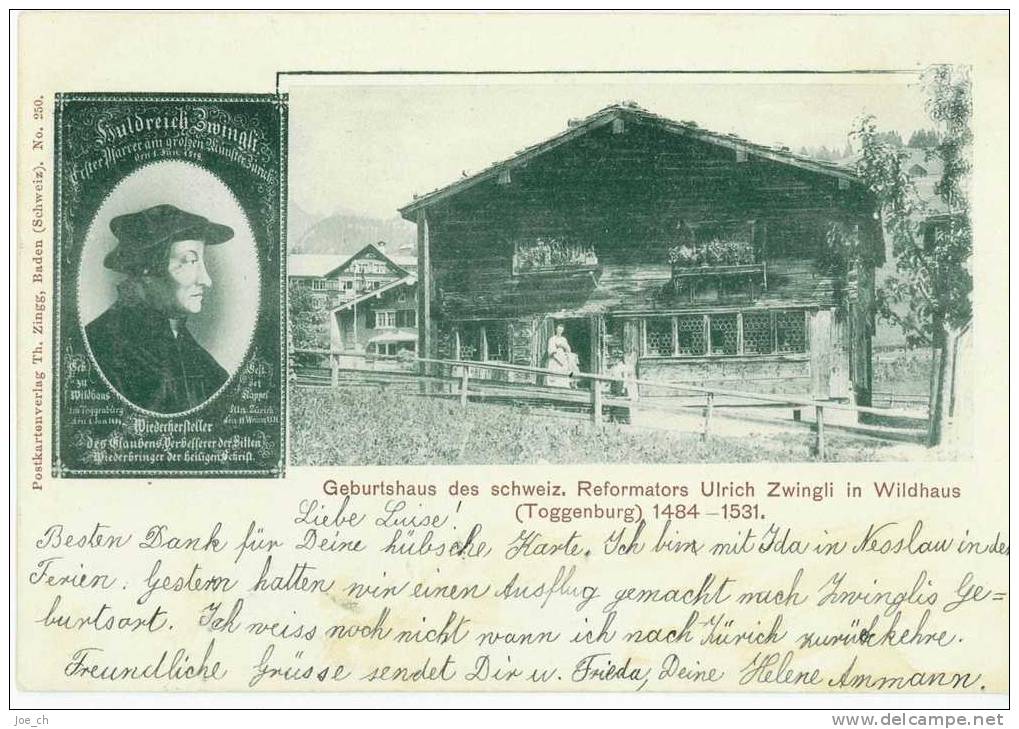 Postkartenverlag Th. Zingg, Baden (Schweiz). No. 250.
Huldreich Zwingli
Erster Pfarrer am großen Münster Zürich
den 1. Jan. 1519.
Geb.
zu
Wildhaus
im Toggenburg
den 1. Jan. 1484
Gest.
bei
Kappel
Ktn. Zürich
Wiederhersteller
des Glaubens, Verbesserer der Sitten,
Wiederbringer der heiligen Schrift.
Geburtshaus des schweiz. Reformators Ulrich Zwingli in Wildhaus
(Toggenburg) 1484–1531.
Liebe Luise!
Besten Dank für Deine hübsche Karte. Ich bin mit Ida in Nesslau in den
Ferien. Gestern hatten wir einen Ausflug gemacht nach Zwinglis Ge=
burtsort. Ich weiss noch nicht wann ich nach Zürich zurückkehre.
Freundliche Grüsse sendet Dir u. Frieda, Deine Helene Ammann.
Joe_ch
www.delcampe.net